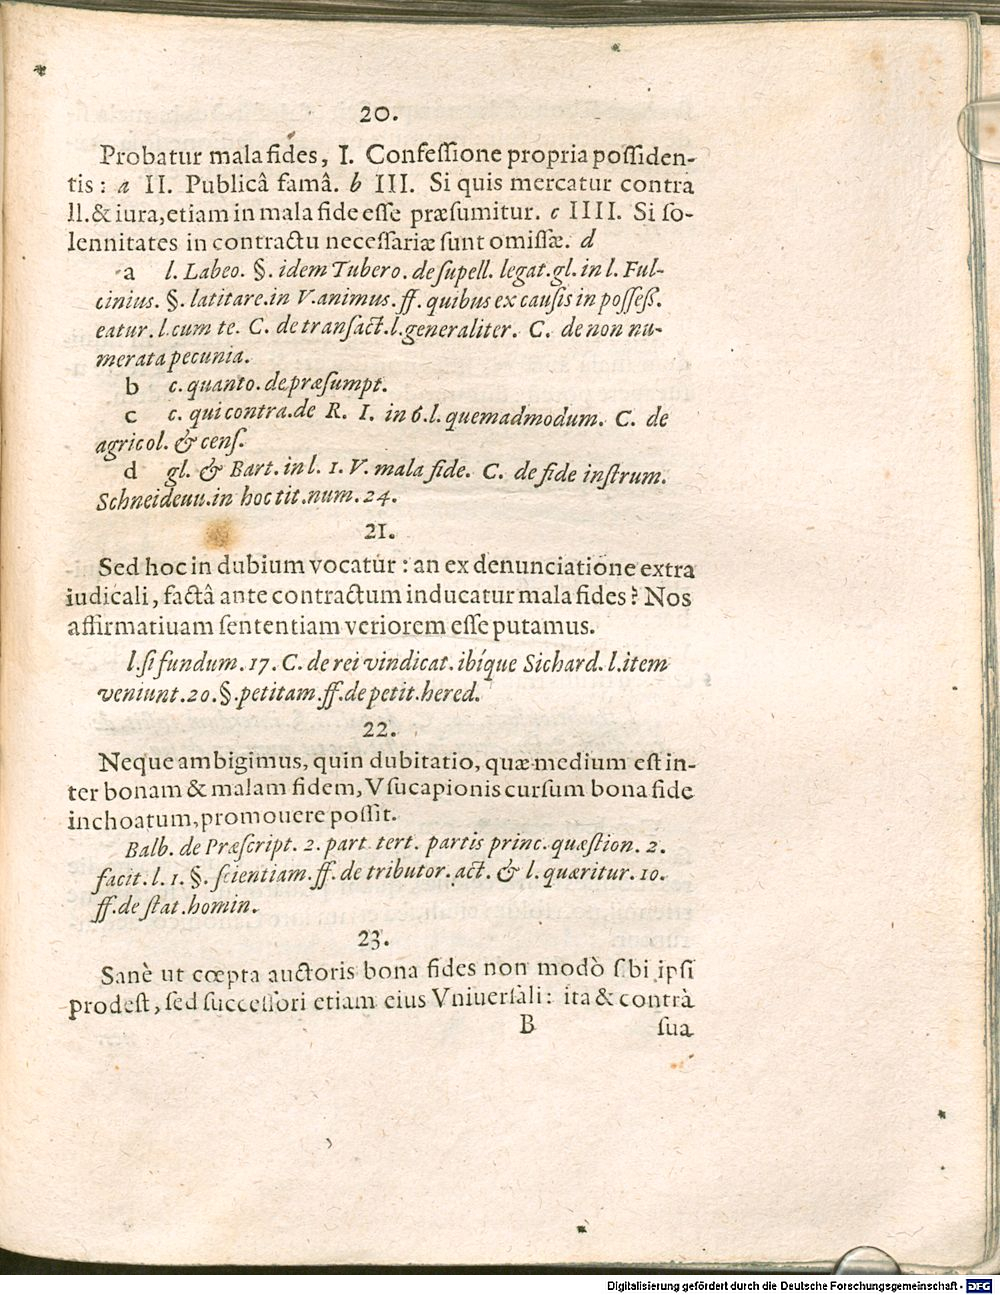 20.
Probatur mala fides, I. Confeſſione propria poſſiden-
tis: a II. Publicâ famâ. b III. Si quis mercatur contra
ll. & iura, etiam in mala fide eſſe præſumitur. c IIII. Si ſo-
lennitates in contractu neceſſariæ ſunt omiſſæ. d
a l. Labeo. §. idem Tubero. de ſupell. legat. gl. in l. Ful-
cinius. §. latitare. in V. animus. ff. quibus ex cauſis in poſſeſſ.
eatur. l. cum te. C. de tranſact. l. generaliter. C. de non nu-
merata pecunia.
b c. quanto. de præſumpt.
c c. qui contra. de R. I. in 6. l. quemadmodum. C. de
agricol. & cenſ.
d gl. & Bart. in l. 1. V. mala fide. C. de fide inſtrum.
Schneideuu. in hoc tit. num. 24.
21.
Sed hoc in dubium vocatur: an ex denunciatione extra
iudicali, factâ ante contractum inducatur mala fides? Nos
affirmatiuam ſententiam veriorem eſſe putamus.
l. ſi fundum. 17. C. de rei vindicat. ibíque Sichard. l. item
veniunt. 20. §. petitam. ff. de petit. hered.
22.
Neque ambigimus, quin dubitatio, quæ medium eſt in-
ter bonam & malam fidem, Vſucapionis curſum bona fide
inchoatum, promouere poſſit.
Balb. de Præſcript. 2. part tert. partis princ. quæſtion. 2.
facit. l. 1. §. ſcientiam. ff. de tributor. act. & l. quæritur. 10.
ff. de ſtat. homin.
23.
Sanè ut cœpta auctoris bona fides non modò ſibi ipſi
prodeſt, ſed ſucceſſori etiam eius Vniuerſali: ita & contrà
B sua
Digitalisierung gefördert durch die Deutsche Forschungsgemeinschaft - DFG